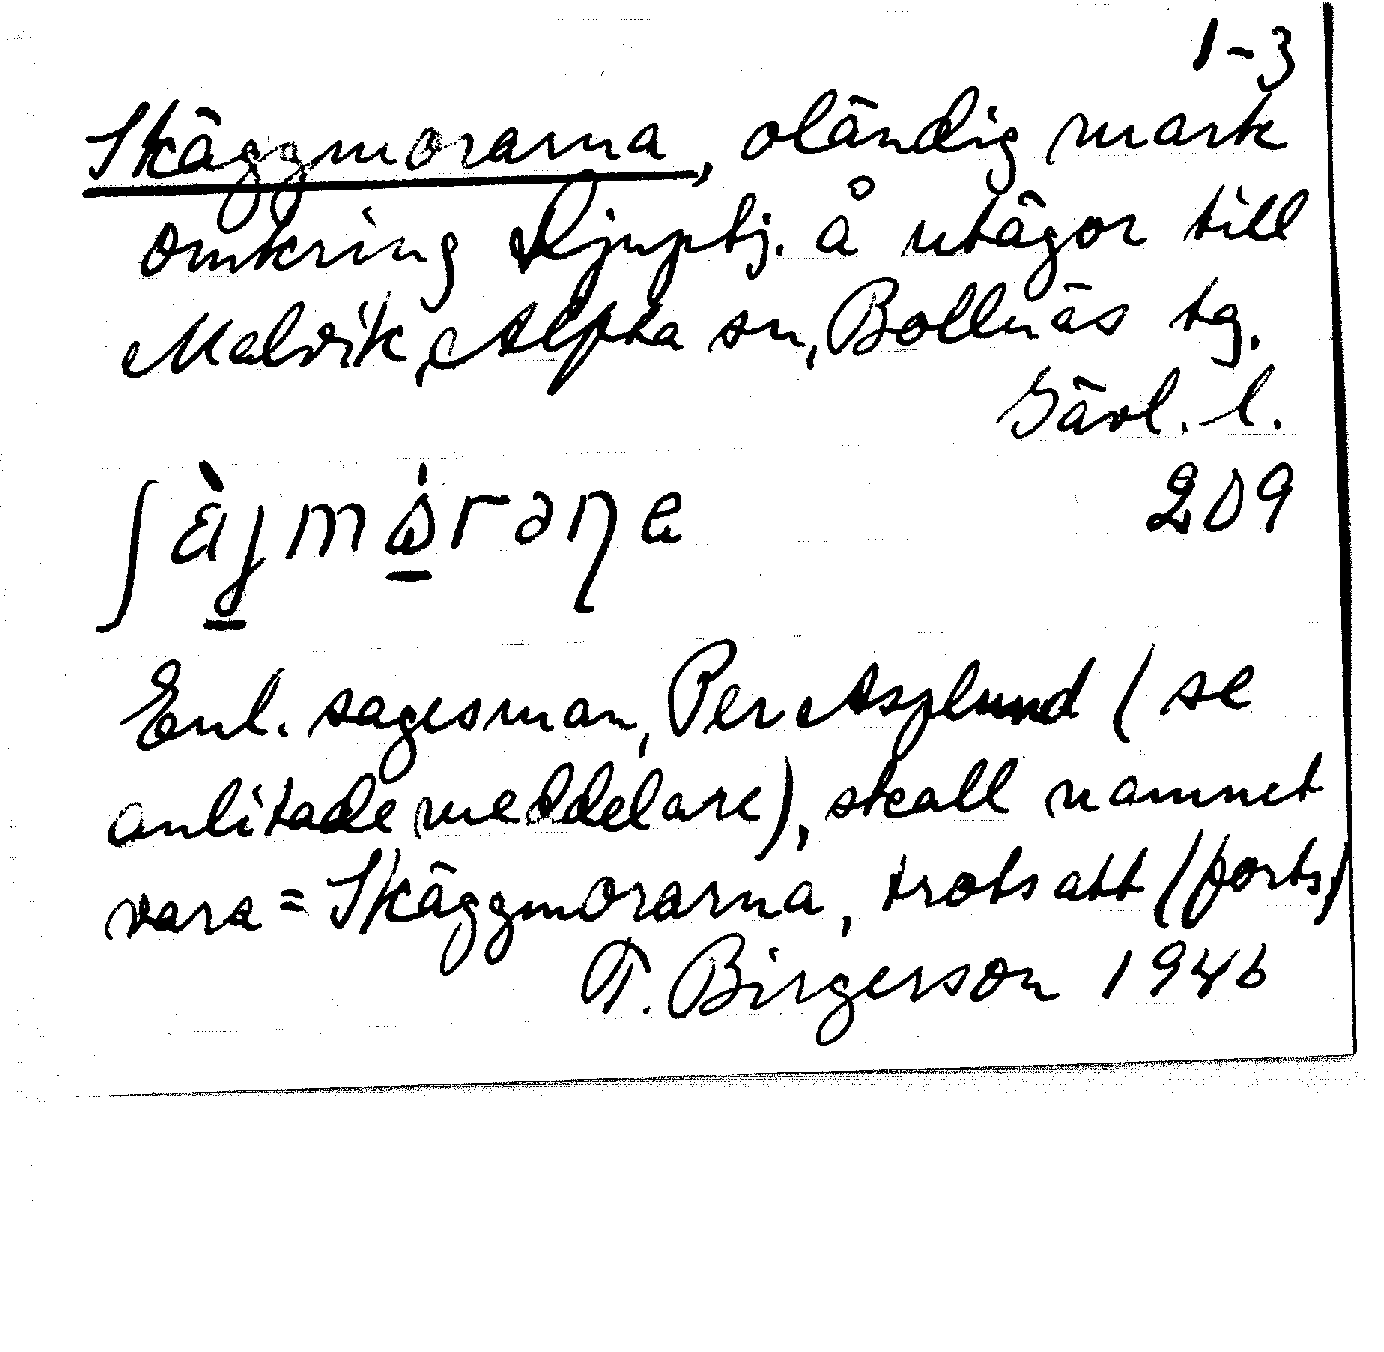 1-3
Skäggmorarna, oländig mark
omkring Djuptj. å utägor till
Malvik, Alfta sn, Bollnäs tg.
Gävl. l.
209
Enl. sagesman, Per Asplund (se
anlitade meddelare), skall namnet
vara = Skäggmorarna, trots att (forts)
T. Birgerson 1946